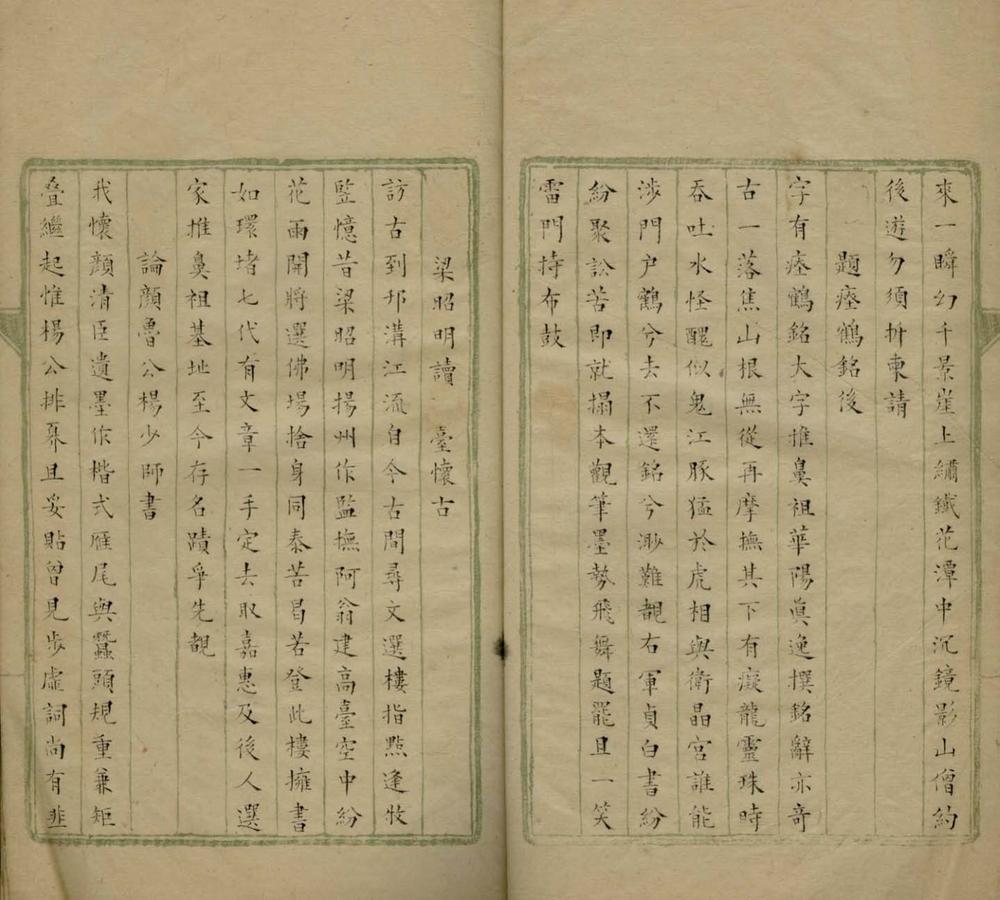 來一瞬幻千景崖上繡鐵花潭中沉鏡影山僧約
後遊勿須折柬請
題瘞鶴銘後
字有瘞鶴銘大字推鼻祖華陽真逸撰銘辭亦奇
古一落焦山根無從再摩撫其下有癡龍靈珠時
吞吐水怪醜似鬼江豚猛於虎相與衛晶宮誰能
涉門户鶴兮去不還銘兮渺難覩右軍貞白書紛
紛聚訟苦即就搨本觀筆墨勢飛舞題罷且一笑
雷門持布鼓
梁昭明讀 臺懷古
訪古到邗溝江流自今古問尋文選樓指點逢牧
豎憶昔梁昭明揚州作監撫阿翁建高臺空中紛
花雨開將選佛場捨身同泰苦曷若登此樓擁書
如環堵七代有文章一手定去取嘉惠及後人選
家推鼻祖基址至今存名蹟爭先覩
論顏魯公楊少師書
我懷顏清臣遺墨作楷式雁尾與蠶頭規重兼矩
疊繼起惟楊公排奡且妥貼曾見步虛詞尚有韭